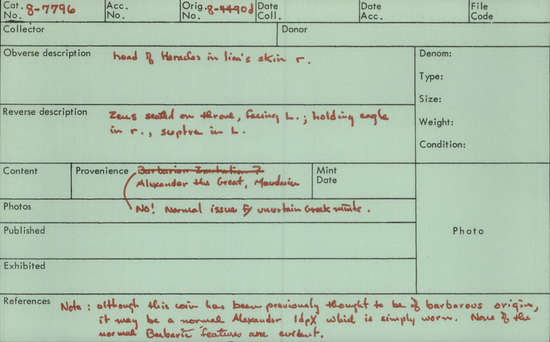 Cat. No. 8-7796 Acc. No. Orig. No. 8-4490d Date Coll. Date Acc. File Code
Collector Donor
Obverse description Head of Heracles in lion's skin r.
Denom:
Type:
Size:
Reverse description Zeus seated on throne, facing L.; holding eagle
in r., sceptre in L.
Weight:
Condition:
Content Provenience Barbarian Imitation ?
Alexander the Great, Macedonia
Mint Date
Photos No! Normal issue by uncertain Greek mint.
Published
Photo
Exhibited
References Note: although this coin has been previously thought to be of barbarous origin,
it may be a normal Alexander which is simply worn. None of the
normal Barbaric features are evident.